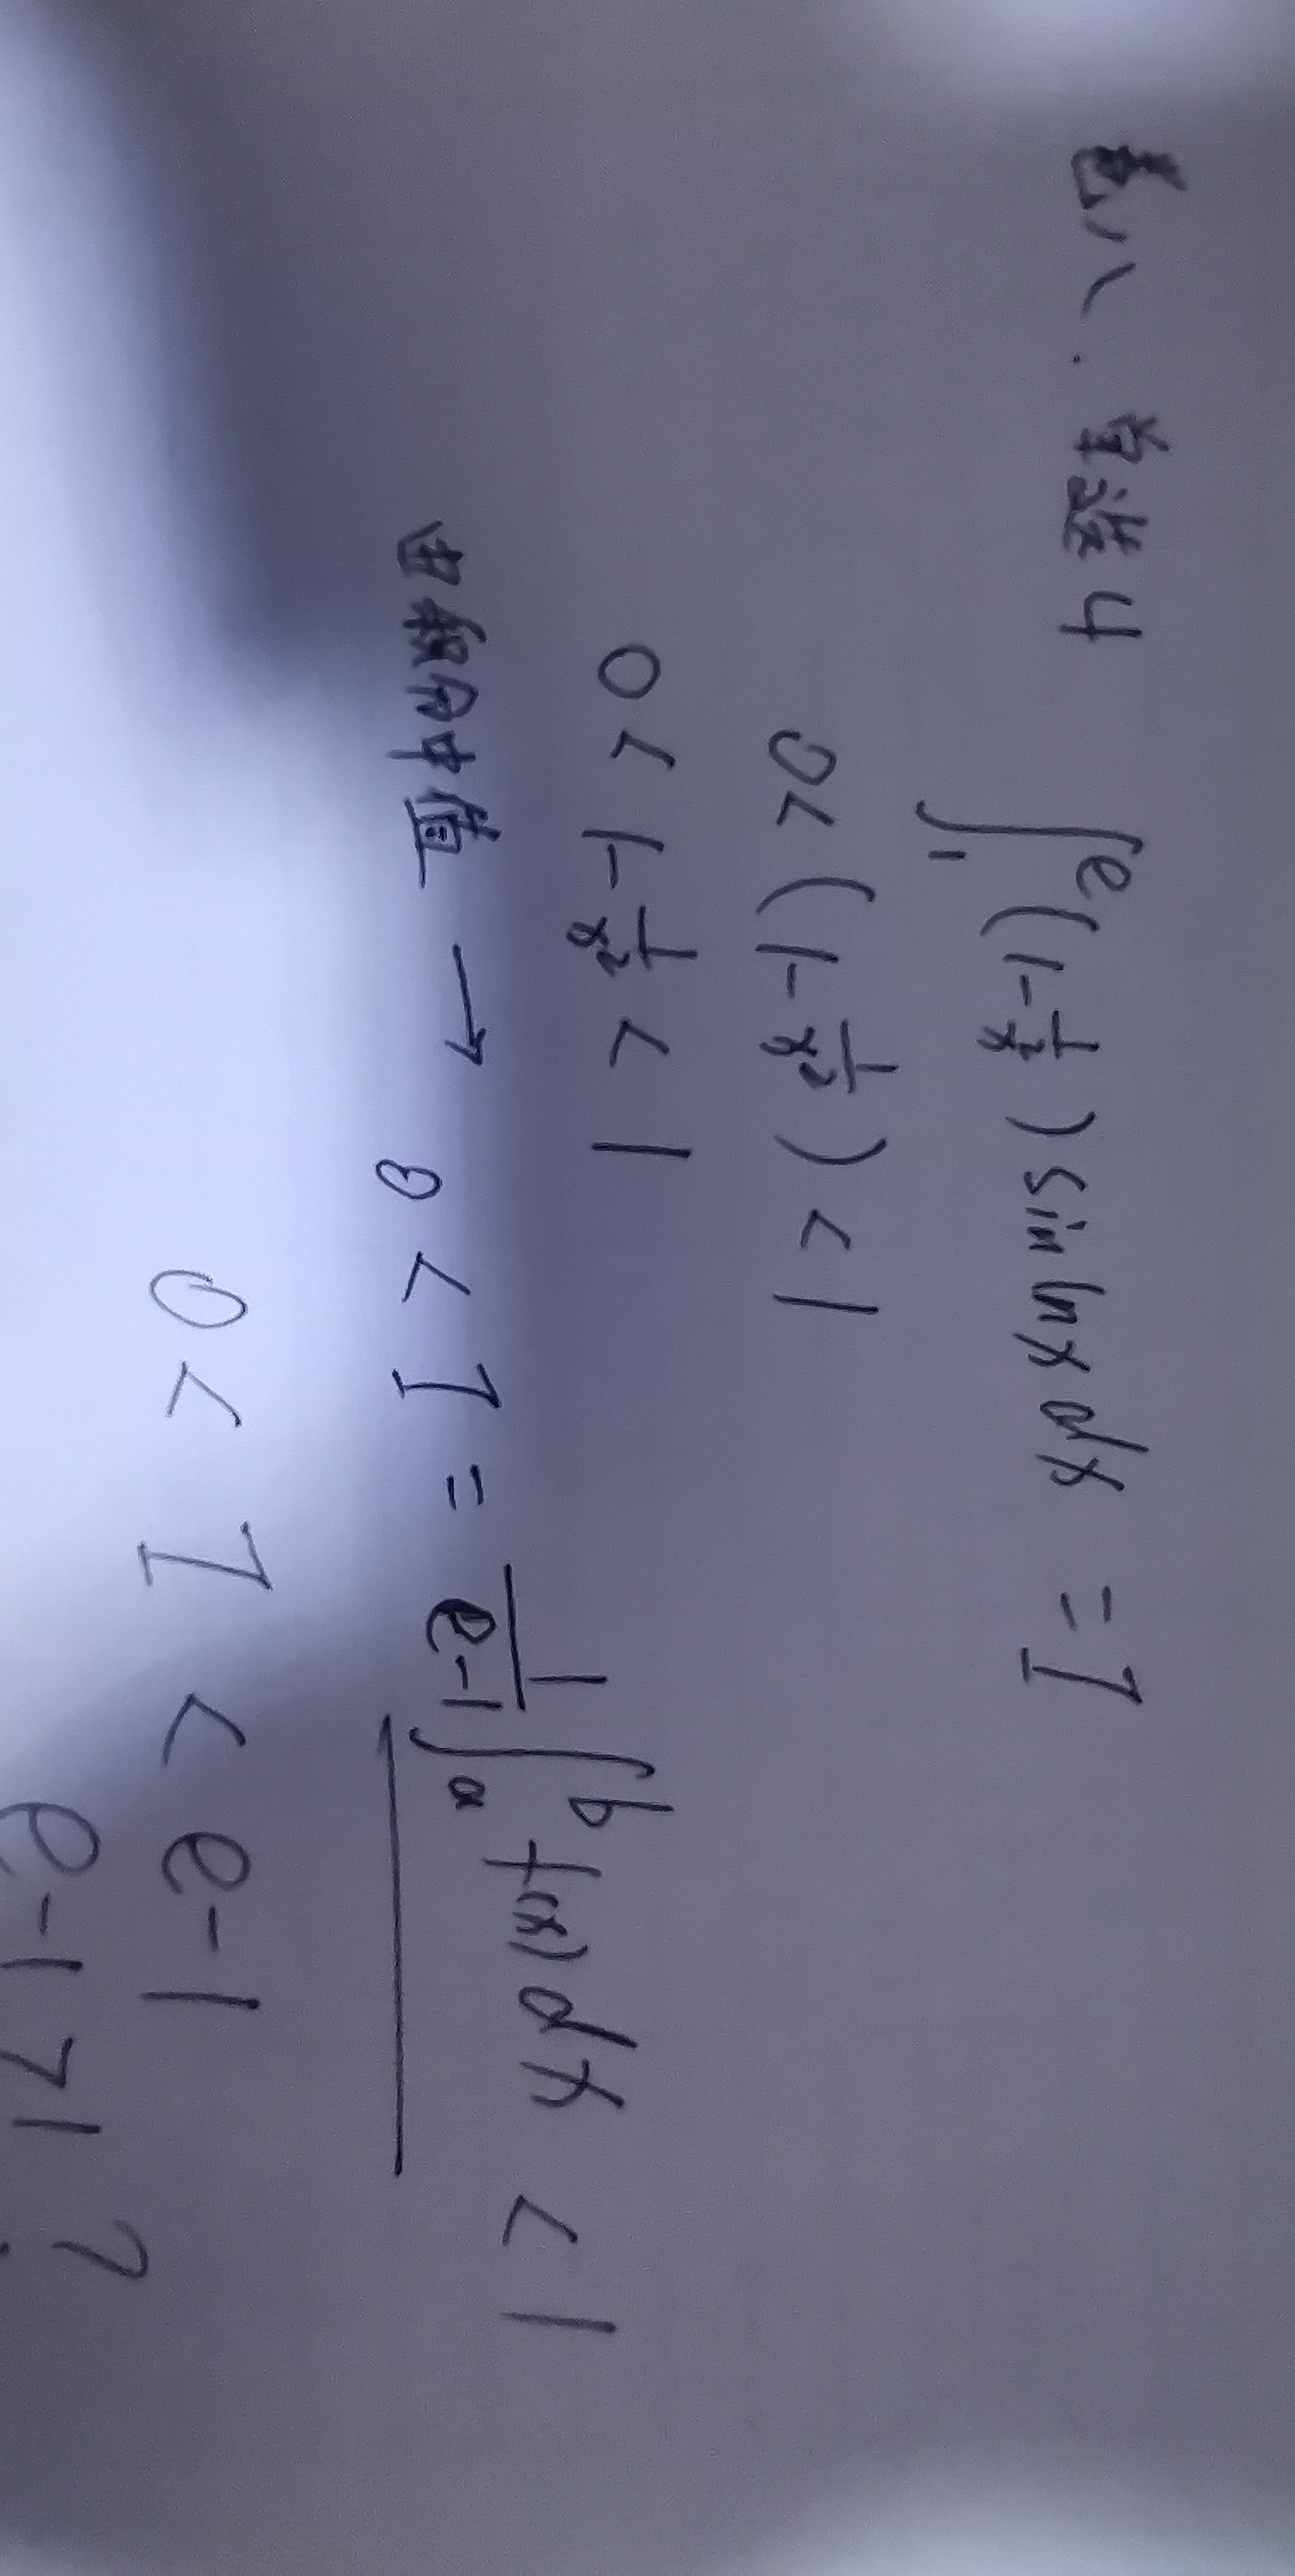 八. 单选4
∫₁ᵉ (1-1/x²) sin ln x dx = I
0< (1-1/x²) <1
0 < 1-1/x² < 1
由积分中值 → 0 < I = 1/(e-1) ∫ₐᵇ f(x) dx < 1
0 < I < e-1
e-1 > 1 ?